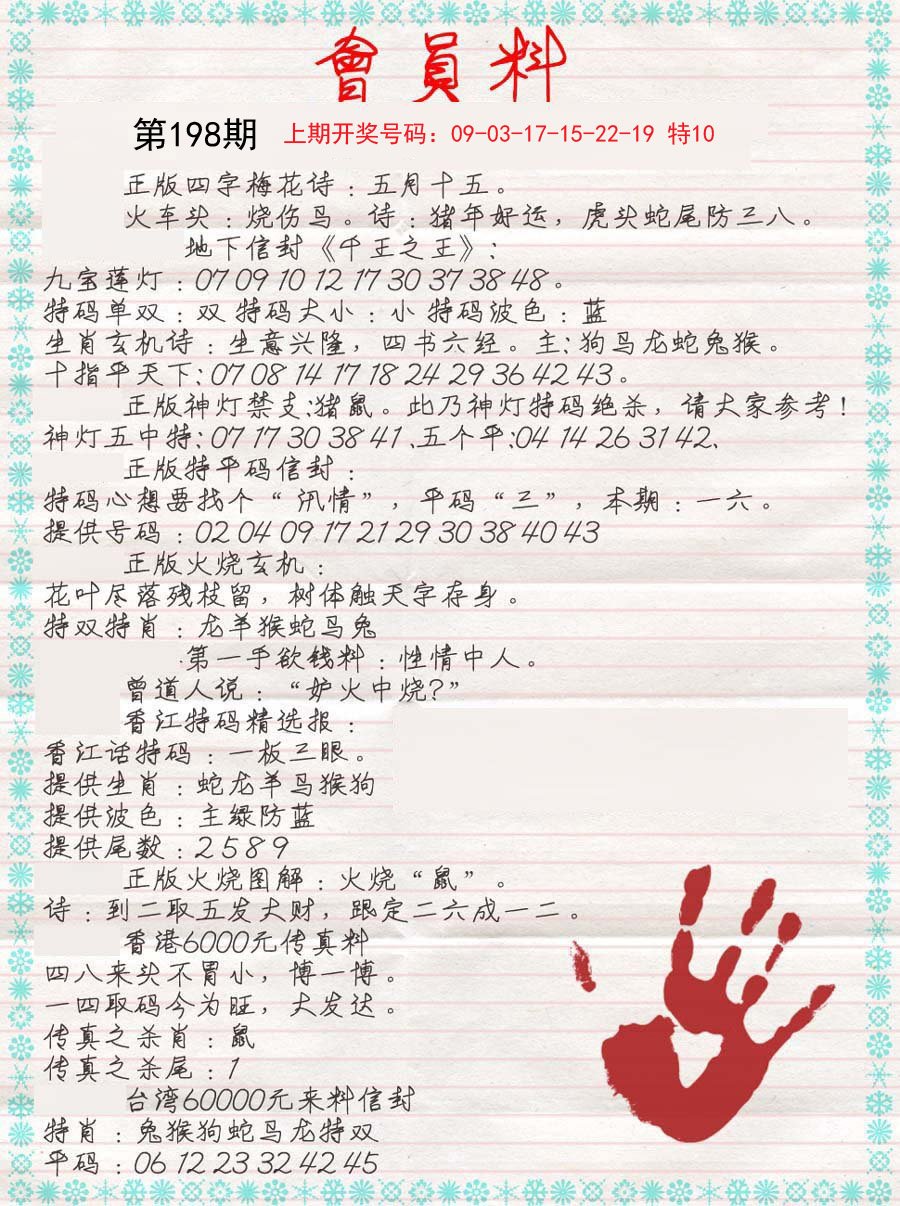 會員料
第198期 上期开奖号码：09-03-17-15-22-19 特10
正版四字梅花诗：五月十五。
火车头：烧伤鸟。诗：猪年好运，虎头蛇尾防三八。
地下信封《千王之王》：
九宝莲灯：07 09 10 12 17 30 37 38 48。
特码单双：双 特码大小：小 特码波色：蓝
生肖玄机诗：生意兴隆，四书六经。主：狗马龙蛇兔猴。
十指平天下：07 08 14 17 18 24 29 36 42 43。
正版神灯禁支：猪鼠。此乃神灯特码绝杀，请大家参考！
神灯五中特：07 17 30 38 41、五个平：04 14 26 31 42、
正版特平码信封：
特码心想要找个“汛情”，平码“三”，本期：一六。
提供号码：02 04 09 17 21 29 30 38 40 43
正版火烧玄机：
花叶尽落残枝留，树体触天字存身。
特双特肖：龙羊猴蛇马兔
·第一手欲钱料：性情中人。
曾道人说：“妒火中烧？”
香江特码精选报：
香江话特码：一板三眼。
提供生肖：蛇龙羊马猴狗
提供波色：主绿防蓝
提供尾数：2 5 8 9
正版火烧图解：火烧“鼠”。
诗：到二取五发大财，跟定二六成一二。
香港6000元传真料
四八来头不胃小，博一博。
一四取码今为旺，大发达。
传真之杀肖：鼠
传真之杀尾：1
台湾60000元来料信封
特肖：兔猴狗蛇马龙特双
平码：06 12 23 32 42 45